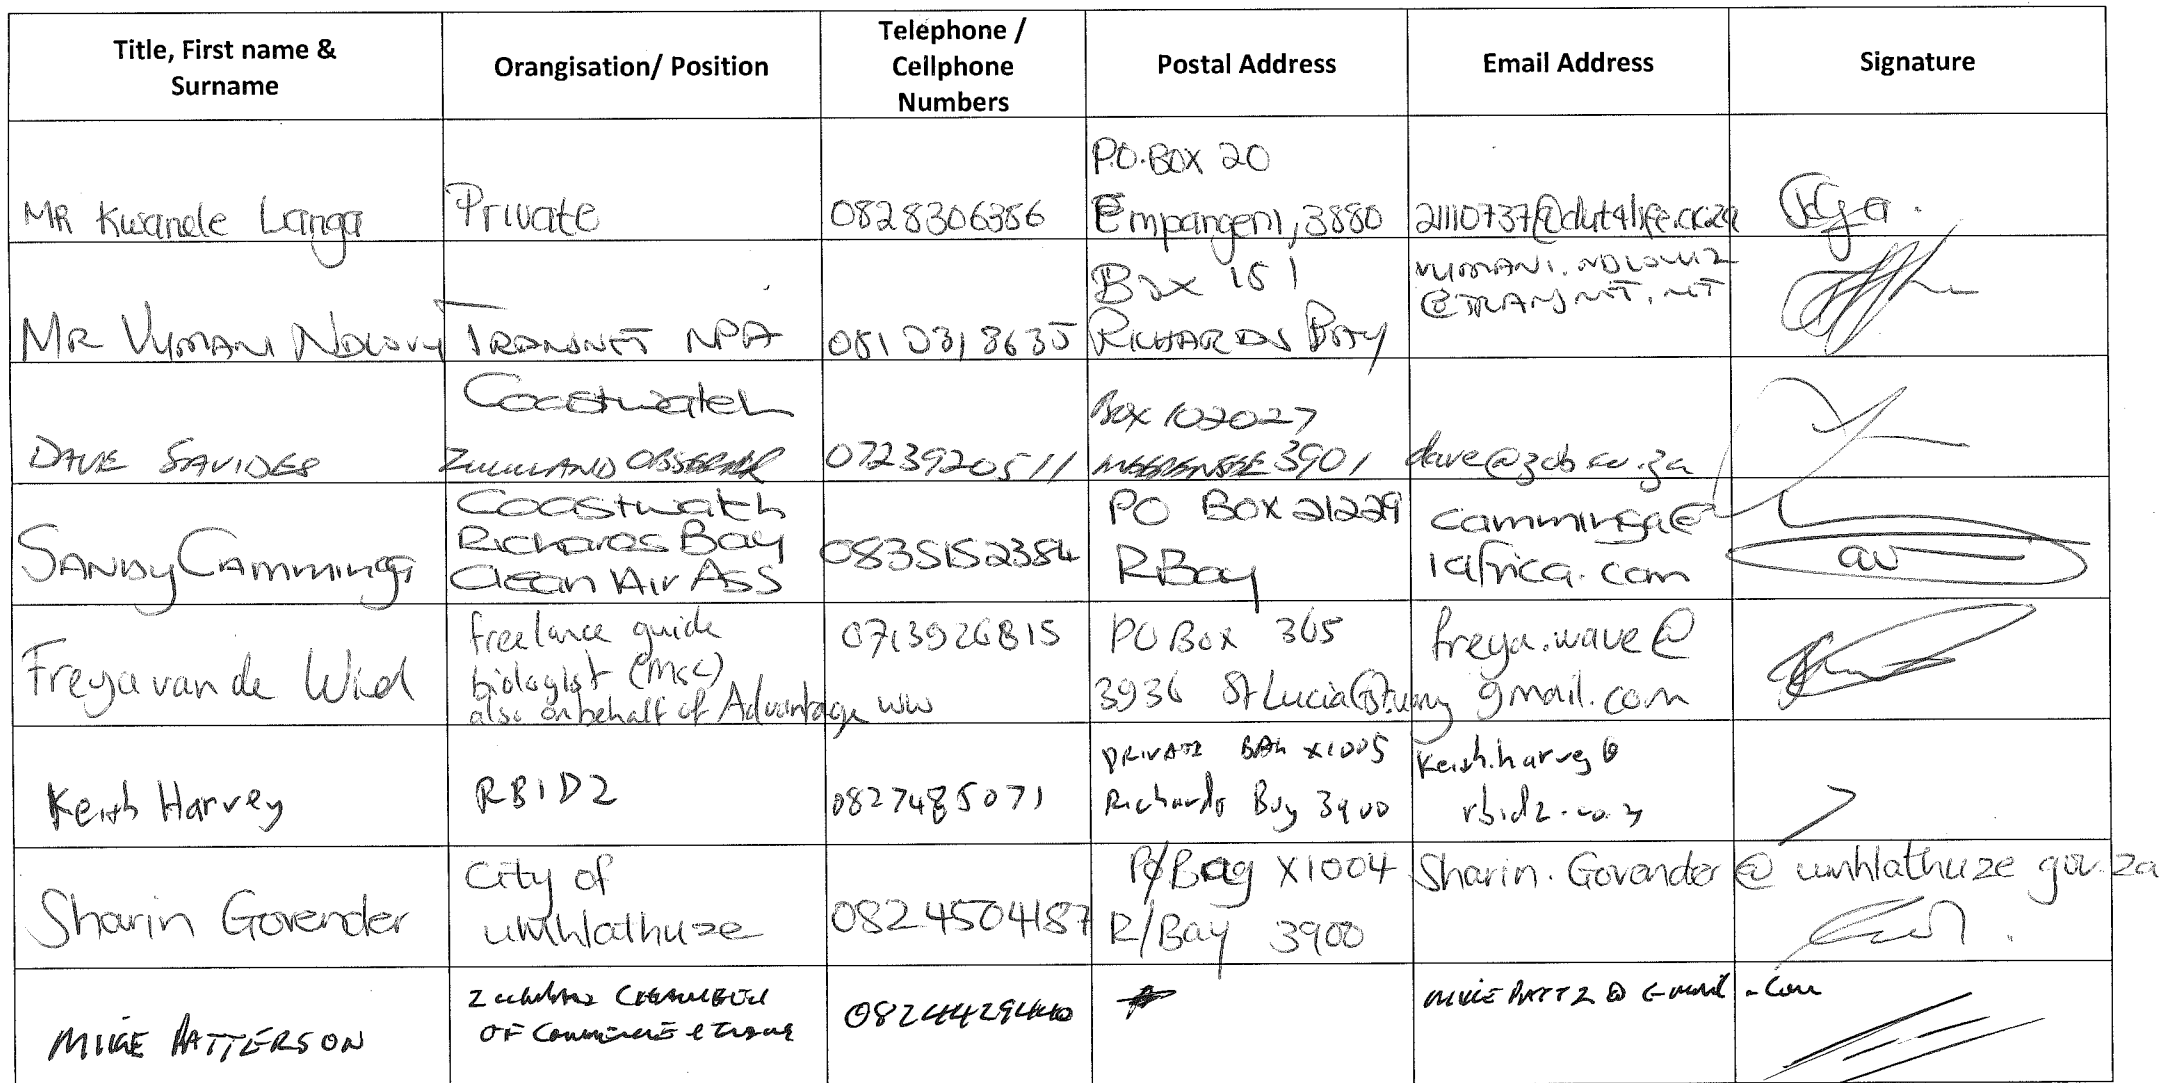 Title, First name &
Surname
Orangisation/ Position
Telephone /
Cellphone
Numbers
Postal Address
Email Address
Signature
MR Kwanele Langa
Private
0828306386
P.O.Box 20
Empangeni, 3880
21110737@dut4life.ac.za
MR VUMANI NDLOVU
TRANSNET NPA
0810318635
Box 151
RICHARDS BAY
VUMANI.NDLOVU2
@TRANSNET.NET
DAVE SAVIDES
Coastwatch
ZULULAND OBSERVER
0723920511
Box 102027
3901
dave@zob.co.za
SANDY CAMMINGA
Coastwatch
Richards Bay
Clean Air Ass
0835152384
PO Box 21229
RBay
camminga@
iafrica.com
Freya van de
freelance guide
biologist (Msc)
also on behalf of Advantage ww
0713926815
PO Box 365
3936 St Lucia Estuary
freya.wave@
gmail.com
Keith Harvey
RBIDZ
0827485071
PRIVATE BAG X1005
Richards Bay 3900
Keith.harvey@
rbidz.co.z
Sharin Govender
City of
umhlathuze
0824504187
P/Bag X1004
R/Bay 3900
Sharin.Govender@umhlathuze.gov.za
MIKE PATTERSON
ZULULAND CHAMBER
OF COMMERCE &
0824429440
MIKEPATTZ@GMAIL.COM